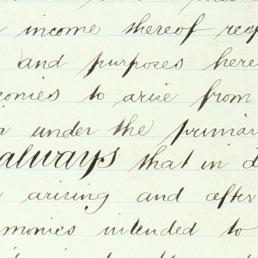 income thereof
and purposes here
monies to arise from
under the primar
always that in d
arising and after
monies intended to